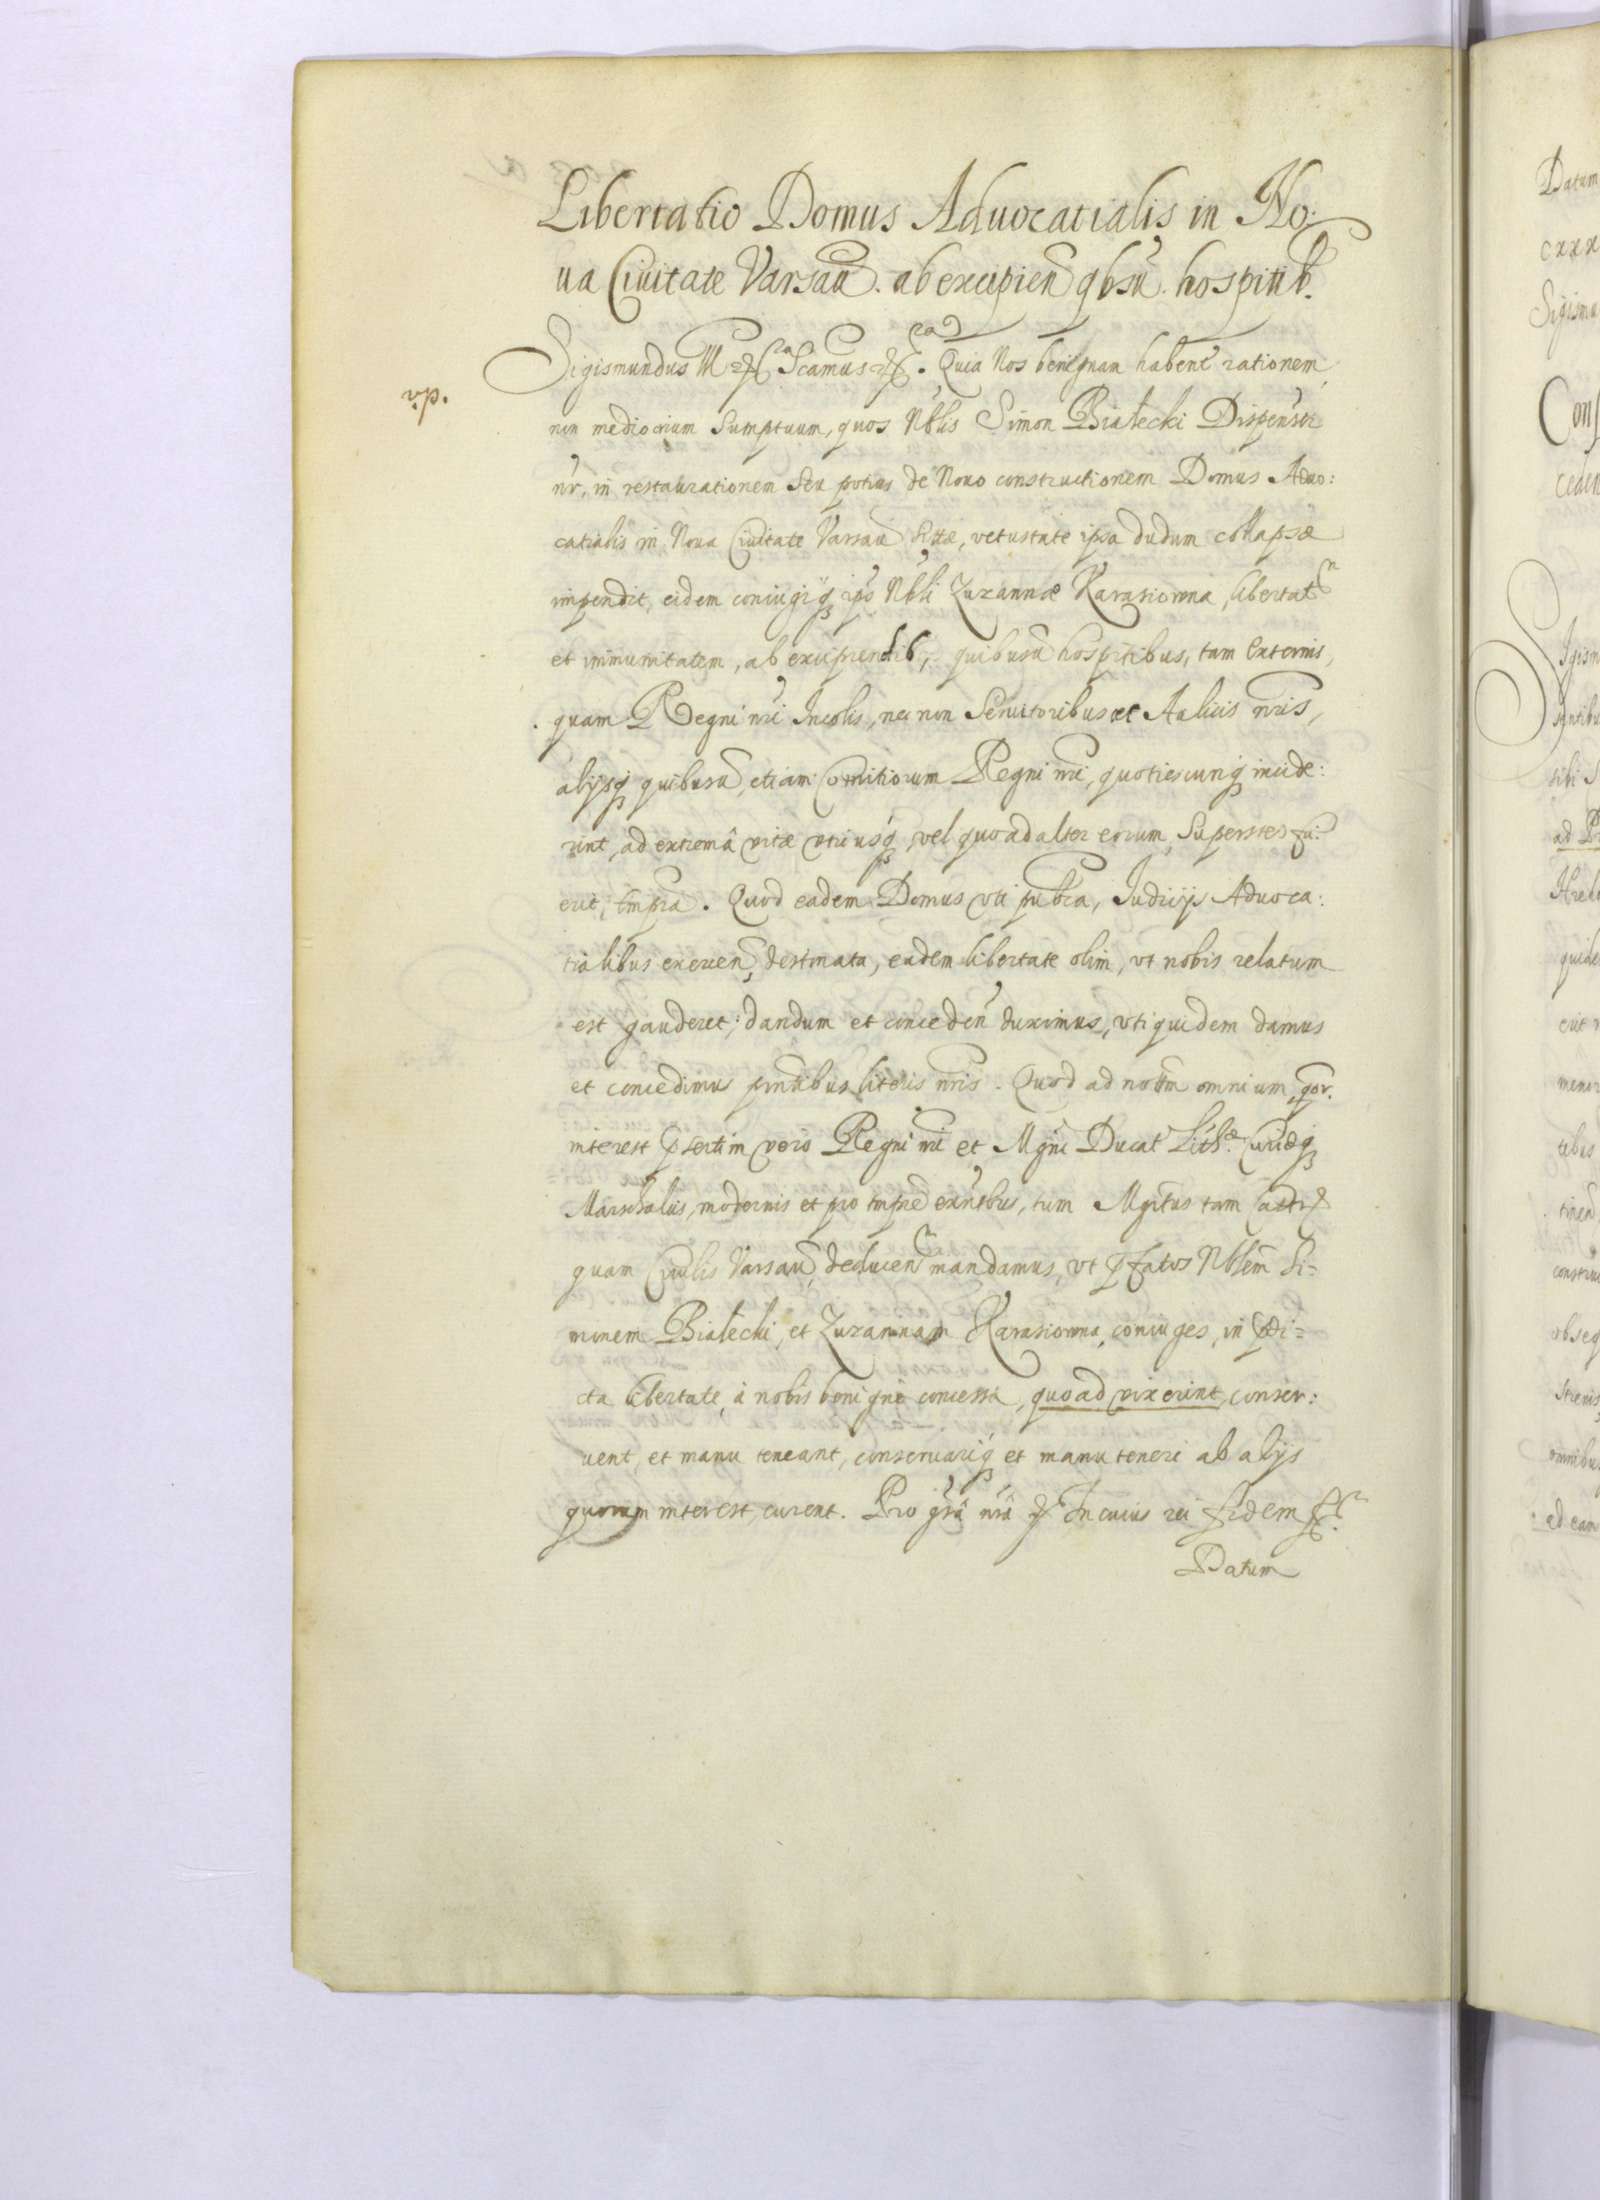 Libertatio Domus Aduocatialis in No:
ua Ciuitate Varsau. ab excipien qbsu. hospitib.
Sigismundus III Scamus. Quia Nos benignam habent rationem
v.p.
non mediocrium sumptuum, quos Nblis Simon Białecki Dispensor
nr, in restaurationem seu potius de Nouo constructionem Domus Aduo:
catialis in Noua Ciuitate Varsau sitæ, vetustate ipsa dudum collapsæ
impendit, eidem coniugiq ips Nbli Zuzannæ Karasiowna, libertat
et immunitatem, ab excipiendib, quibusu hospitibus, tam externis,
quam Regni nri Incolis, nec non Seruitoribus et Aulicis nris,
alijsq quibusu, etiam Comitiorum Regni nri, quotiescunq incide:
rint, ad extremâ vitæ vtriusq, vel quoad alter eorum superstes fu:
erit, tmpra. Quod eadem Domus vti publca, Iudicijs Aduoca:
tialibus exercen, destinata, eadem libertate olim, vt nobis relatum
est gauderet; dandum et conceden duximus, vti quidem damus
et concedimus pntibus literis nris. Quod ad notm omnium, qor.
interest psertim vero Regni nri et Mgni Ducat Lith. Curiæq
Marschalcis, modernis et pro tmpre exntbus, tum Mgrtus tam Castr
quam Ciuilis Varsau, deducen mandamus, vt pfatos Nblem Si=
monem Białecki, et Zuzannam Karasiowna, coniuges, in pdi=
cta libertate, à nobis benignè concessa, quoad vixerint, conser:
uent, et manu teneant, conseruariq et manu teneri ab alijs
quorum interest, curent. Pro grâ nrâ In cuius rei fidem
Datum
Datum
cxxx
Sigismu
Cons
ceden
Sigism
sentibu
tibi S
ad Pr
Hredi
quide
erit
menor
tibus
tinen
constru
obseq
strenis
omnibus
ed eam